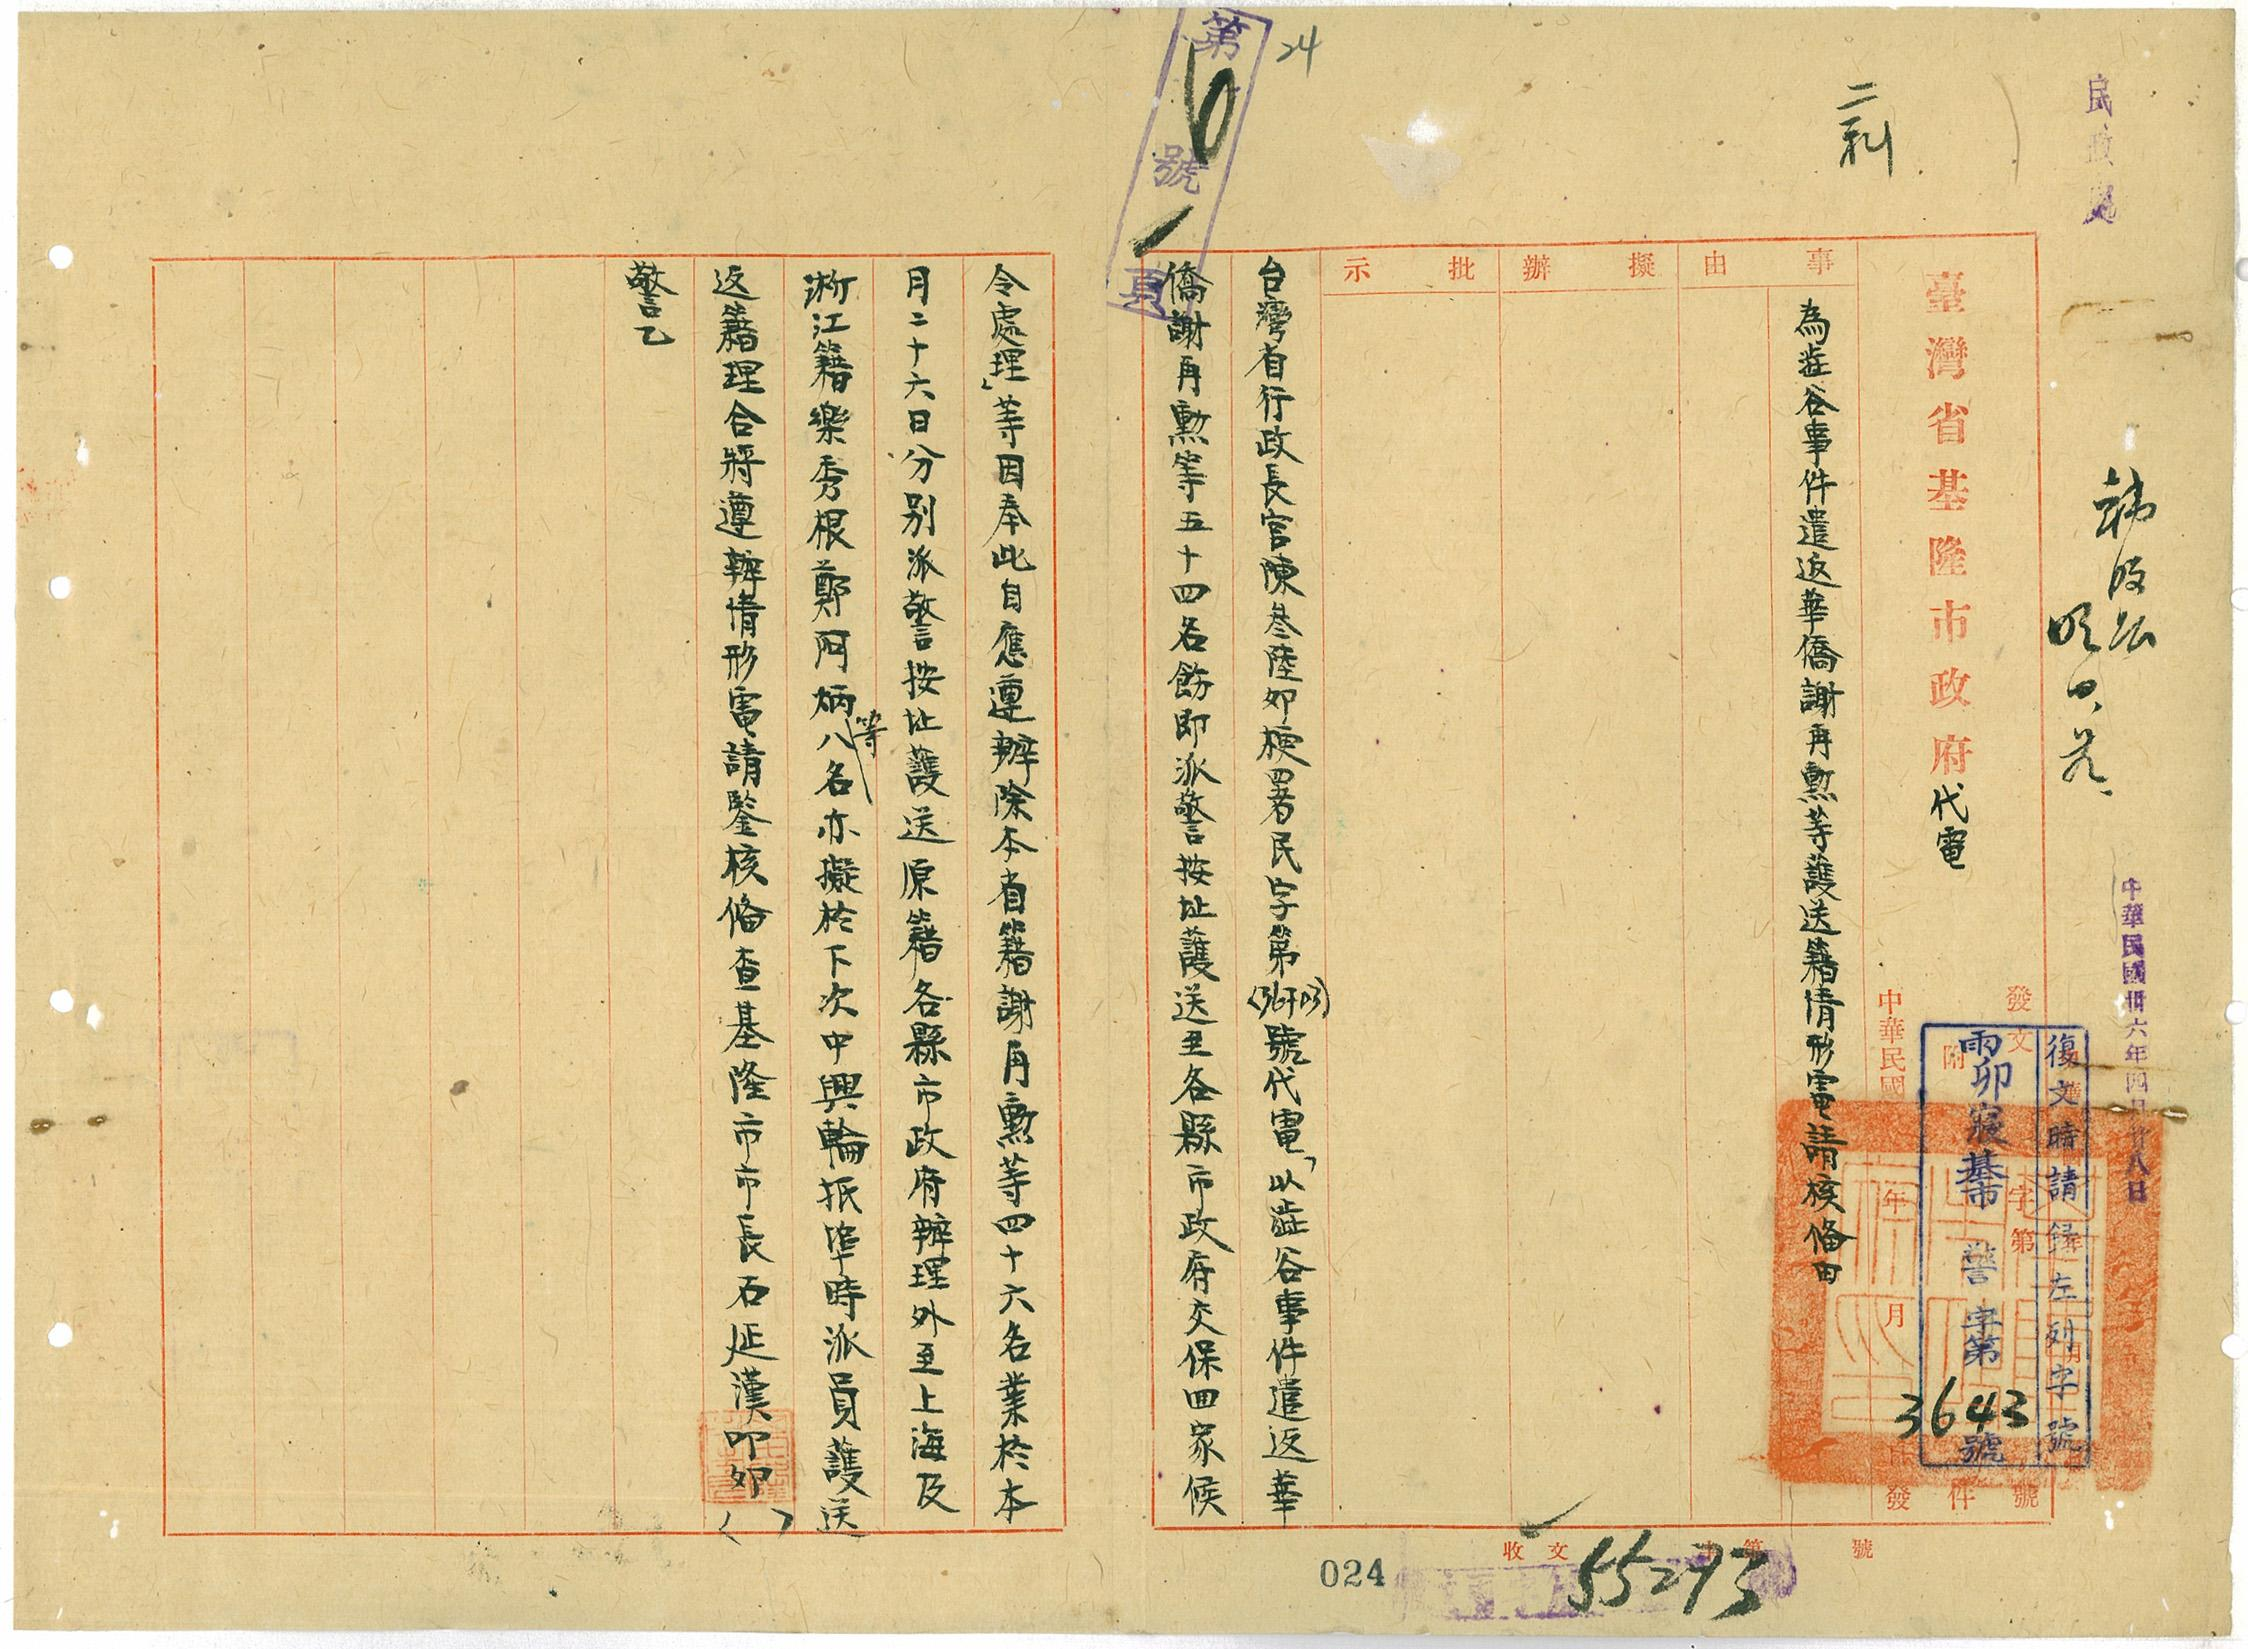 民政處
中華民國卅六年四月廿八日
二科
臺灣省基隆市政府代電
發文
字第
號
附
件
中華民國
年
月
日發
復文時請錄左列字號
丙卯寢基市警字第3643號
事由
為澁谷事件遣返華僑謝再勲等護送籍情形電請核俻由
擬辦
批示
台灣省行政長官陳叁陸卯梗署民字第(36703)號代電「以澁谷事件遣返華
僑謝再勲等五十四名飭即派警按址護送至各縣市政府交保回家候
令處理」等因奉此自應遵辦除本省籍謝再勲等四十六名業於本
月二十六日分别派警按址護送原籍各縣市政府辦理外至上海及
浙江籍樂秀根鄭阿炳等八名亦擬於下次中興輪抵埠時派員護送
返籍理合將遵辦情形電請鑒核俻查基隆市市長石延漢叩卯( )
警乙
第6號1頁
24
收文
字第
號
55273
024